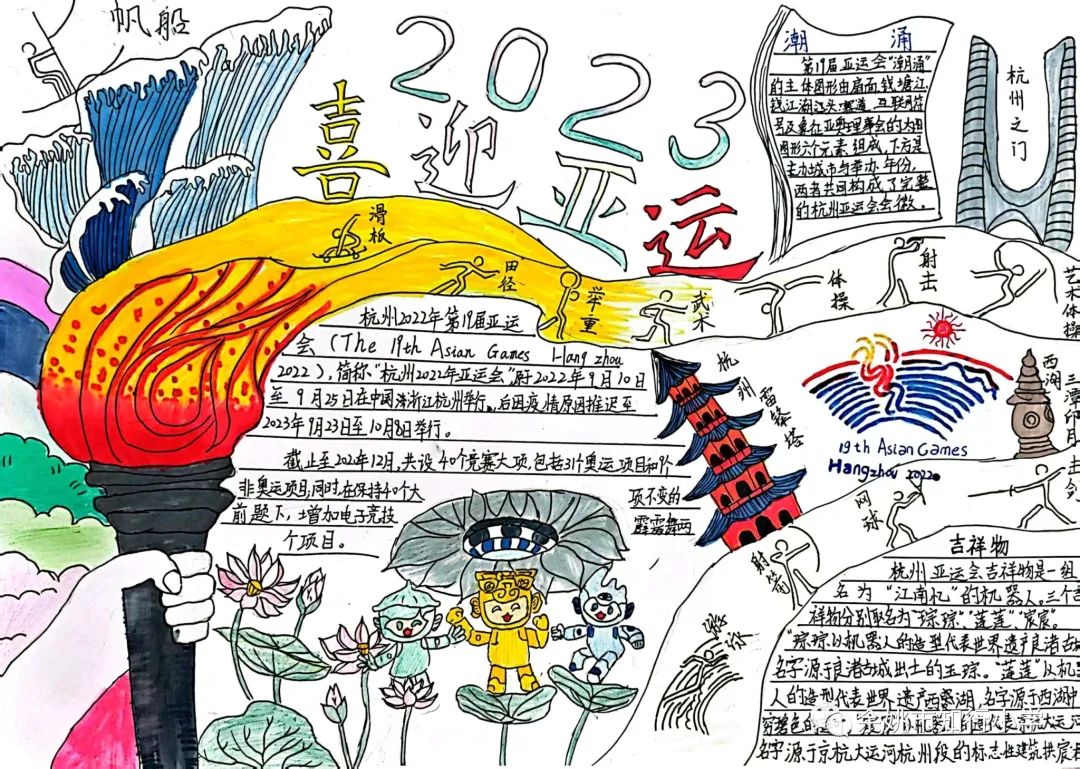 帆船
2023
喜迎亚运
潮 涌
第19届亚运会"潮涌"
的主体图形由扇面、钱塘江、
钱江潮头、赛道、互联网符
号及象征亚奥理事会的太阳
图形六个元素组成,下方是
主办城市与举办年份,
两者共同构成了完整
的杭州亚运会会徽。
杭州之门
滑板
田径
举重
武术
体操
射击
艺术体操
杭州2022年第19届亚运
会(The 19th Asian Games Hangzhou
2022),简称"杭州2022年亚运会"原于2022年9月10日
至9月25日在中国浙江杭州举行。后因疫情原因推迟至
2023年9月23日至10月8日举行。
截止至 年12月,共设40个竞赛大项,包括31个奥运项目和9个
非奥运项目,同时,在保持40个大项不变的
前题下,增加电子竞技 霹雳舞两
个项目。
杭州雷峰塔
19th Asian Games
Hangzhou 2022
西湖
三潭印月
击剑
网球
射箭
吉祥物
杭州亚运会吉祥物是一组
名为"江南忆"的机器人,三个吉
祥物分别取名为"琮琮"、"莲莲"、宸宸。
"琮琮以机器人的造型代表世界遗产良渚古城
名字源于良渚古城出土的玉琮。"莲莲"从机器
人的造型代表世界遗产西湖,名字源于西湖中
穷碧色的 机器 代表 大运河
名字源于京杭大运河杭州段的标志性建筑拱宸